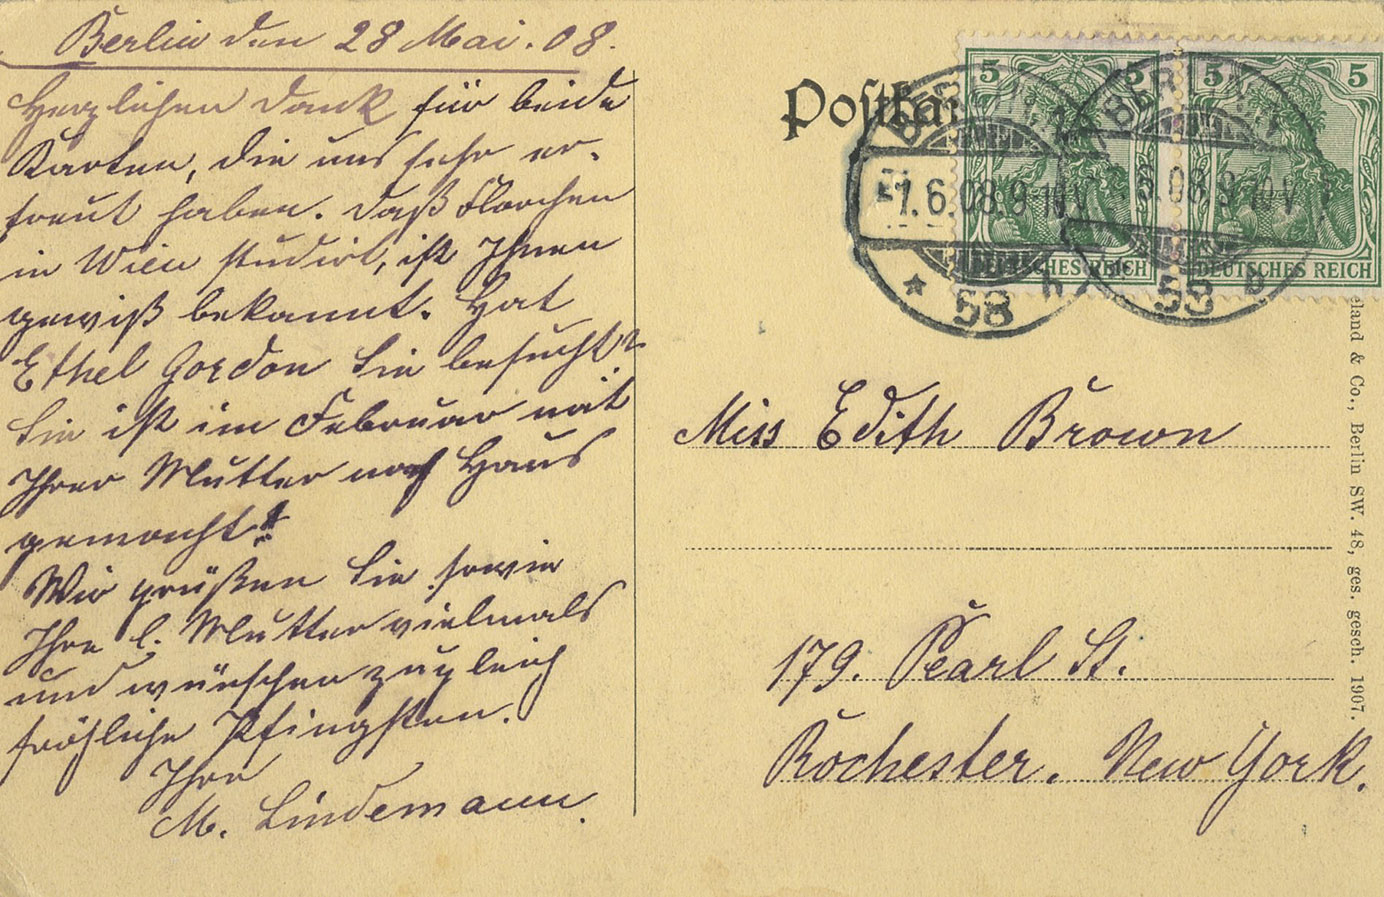 Berlin den 28 Mai. 08.
Herzlichen Dank für beide
Karten, die uns sehr er-
freut haben. Daß Klärchen
in Wien studirt, ist Ihnen
gewiß bekannt. Hat
Ethel Gordon Sie besucht?
Sie ist im Februar mit
Ihrer Mutter nach Haus
gemacht!
Wir grüßen Sie sowie
Ihre l. Mutter vielmals
und wünschen zugleich
fröhliche Pfingsten.
Ihre
M. Lindemann.
Postkar
5 5 5 5
DEUTSCHES REICH DEUTSCHES REICH
BER
-1.6.08.9-10V
* 58 h
BERLIN
.6.08.9-10V
58 b
Miss Edith Brown
179. Pearl St.
Rochester. New York.
eland & Co., Berlin SW. 48, ges. gesch. 1907.